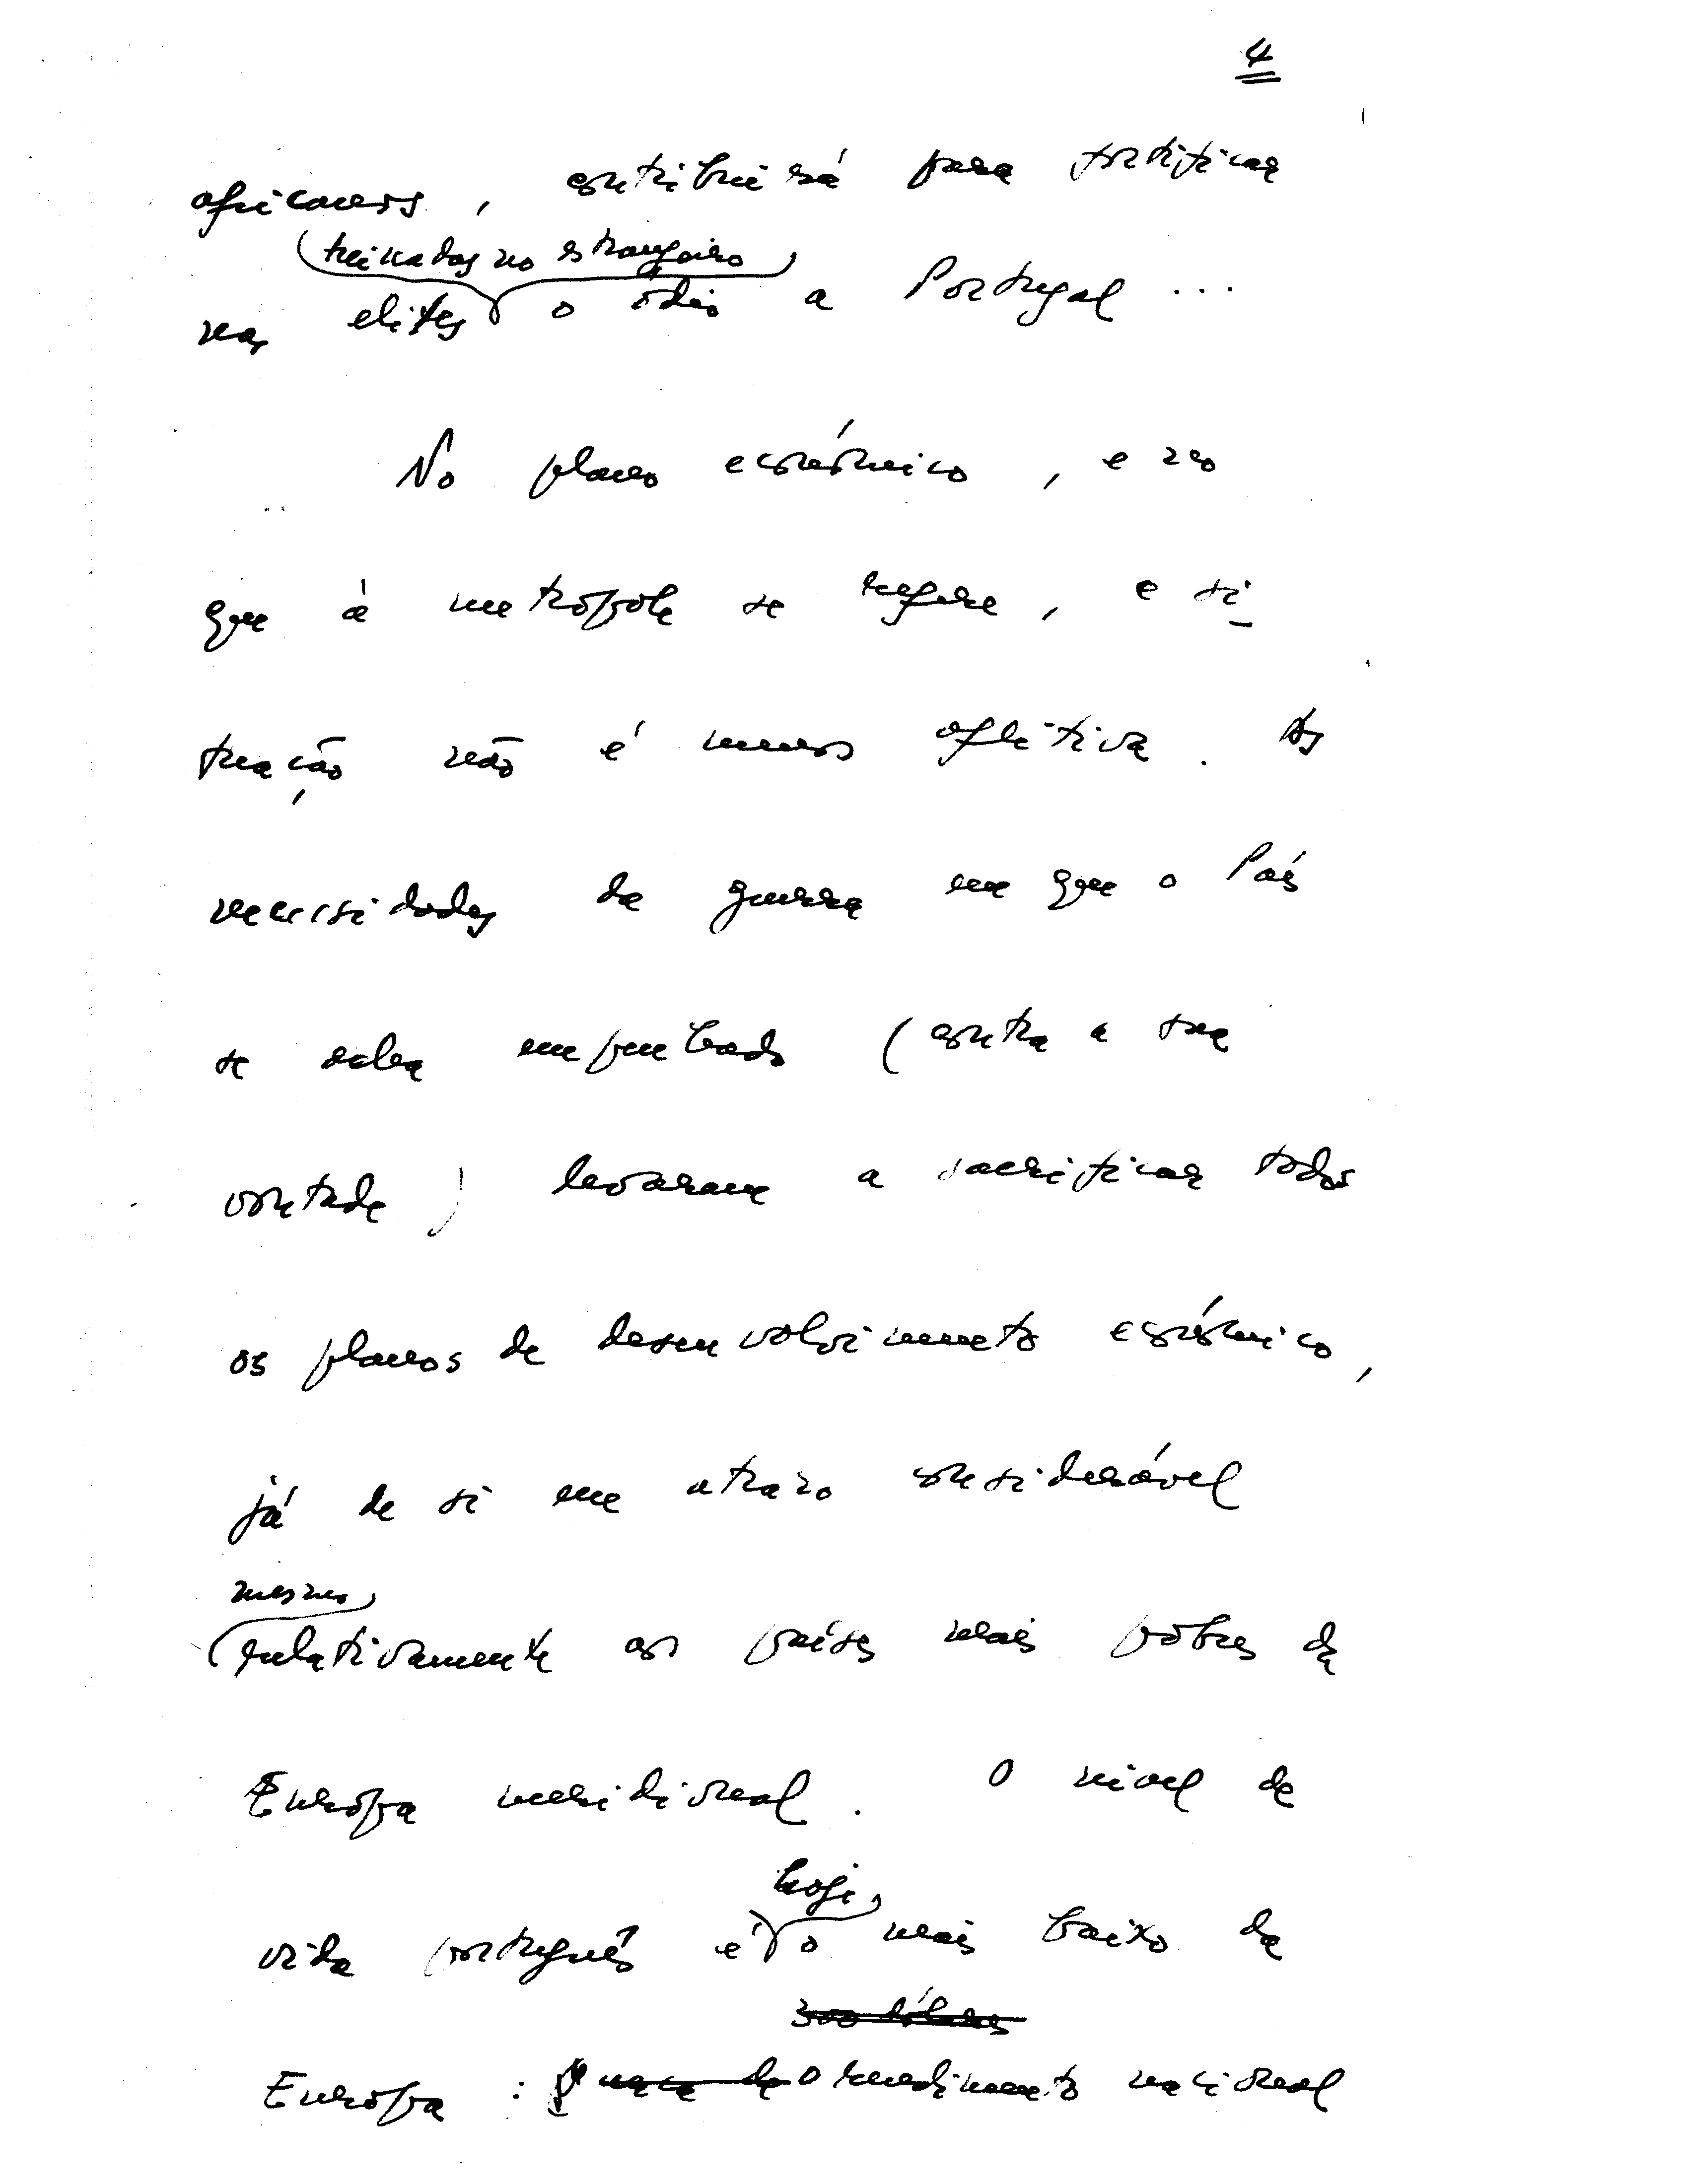 4
africanos, contribuirá para fortificar
(treinados no estrangeiro)
nas elites o ódio a Portugal ...
No plano económico, e no
que à metrópole se refere, a si
tuação não é menos aflitiva. As
necessidades da guerra em que o País
se acha empenhado (contra a sua
vontade) levaram a sacrificar todos
os planos de desenvolvimento económico,
já de si em atrazo considerável
mesmo
relativamente aos países mais pobres da
Európa meridional. O nível de
hoje,
vida português é o mais baixo da
300 dólares
Európa : o rendimento nacional